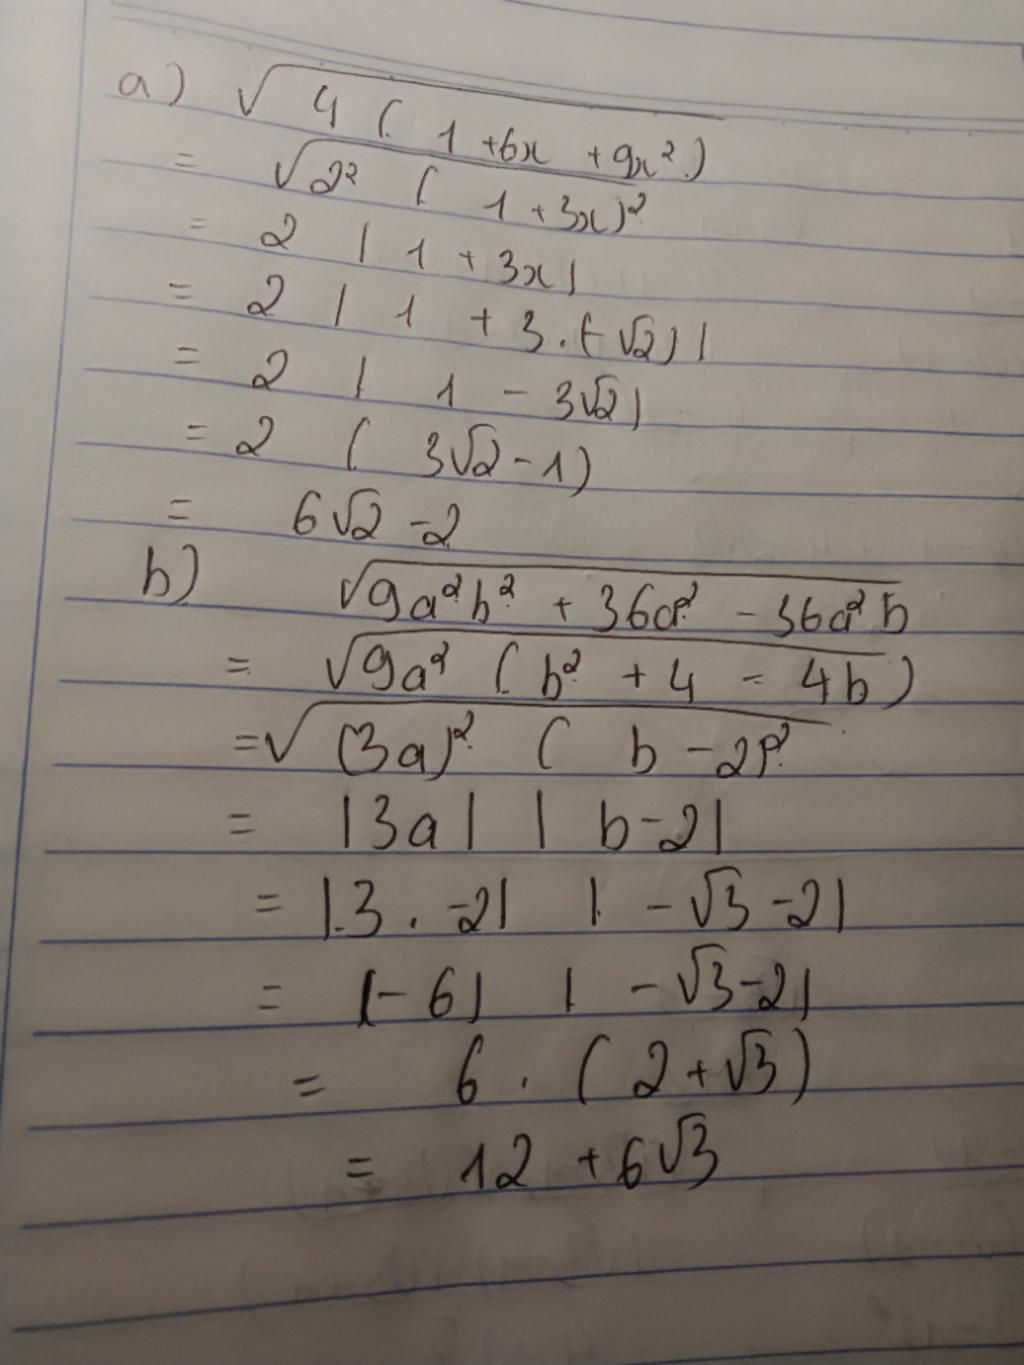 a) √4 ( 1 + 6x + 9x²)
= √2² ( 1 + 3x)²
= 2 | 1 + 3x |
= 2 | 1 + 3.(-√2) |
= 2 | 1 - 3√2 |
= 2 ( 3√2 - 1)
= 6√2 - 2
b) √9a²b² + 36a² - 36a²b
= √9a² ( b² + 4 - 4b )
= √(3a)² ( b - 2)²
= |3a| | b - 2|
= |3 . -2| | -√3 - 2|
= |-6| | -√3 - 2|
= 6 . ( 2 + √3 )
= 12 + 6√3